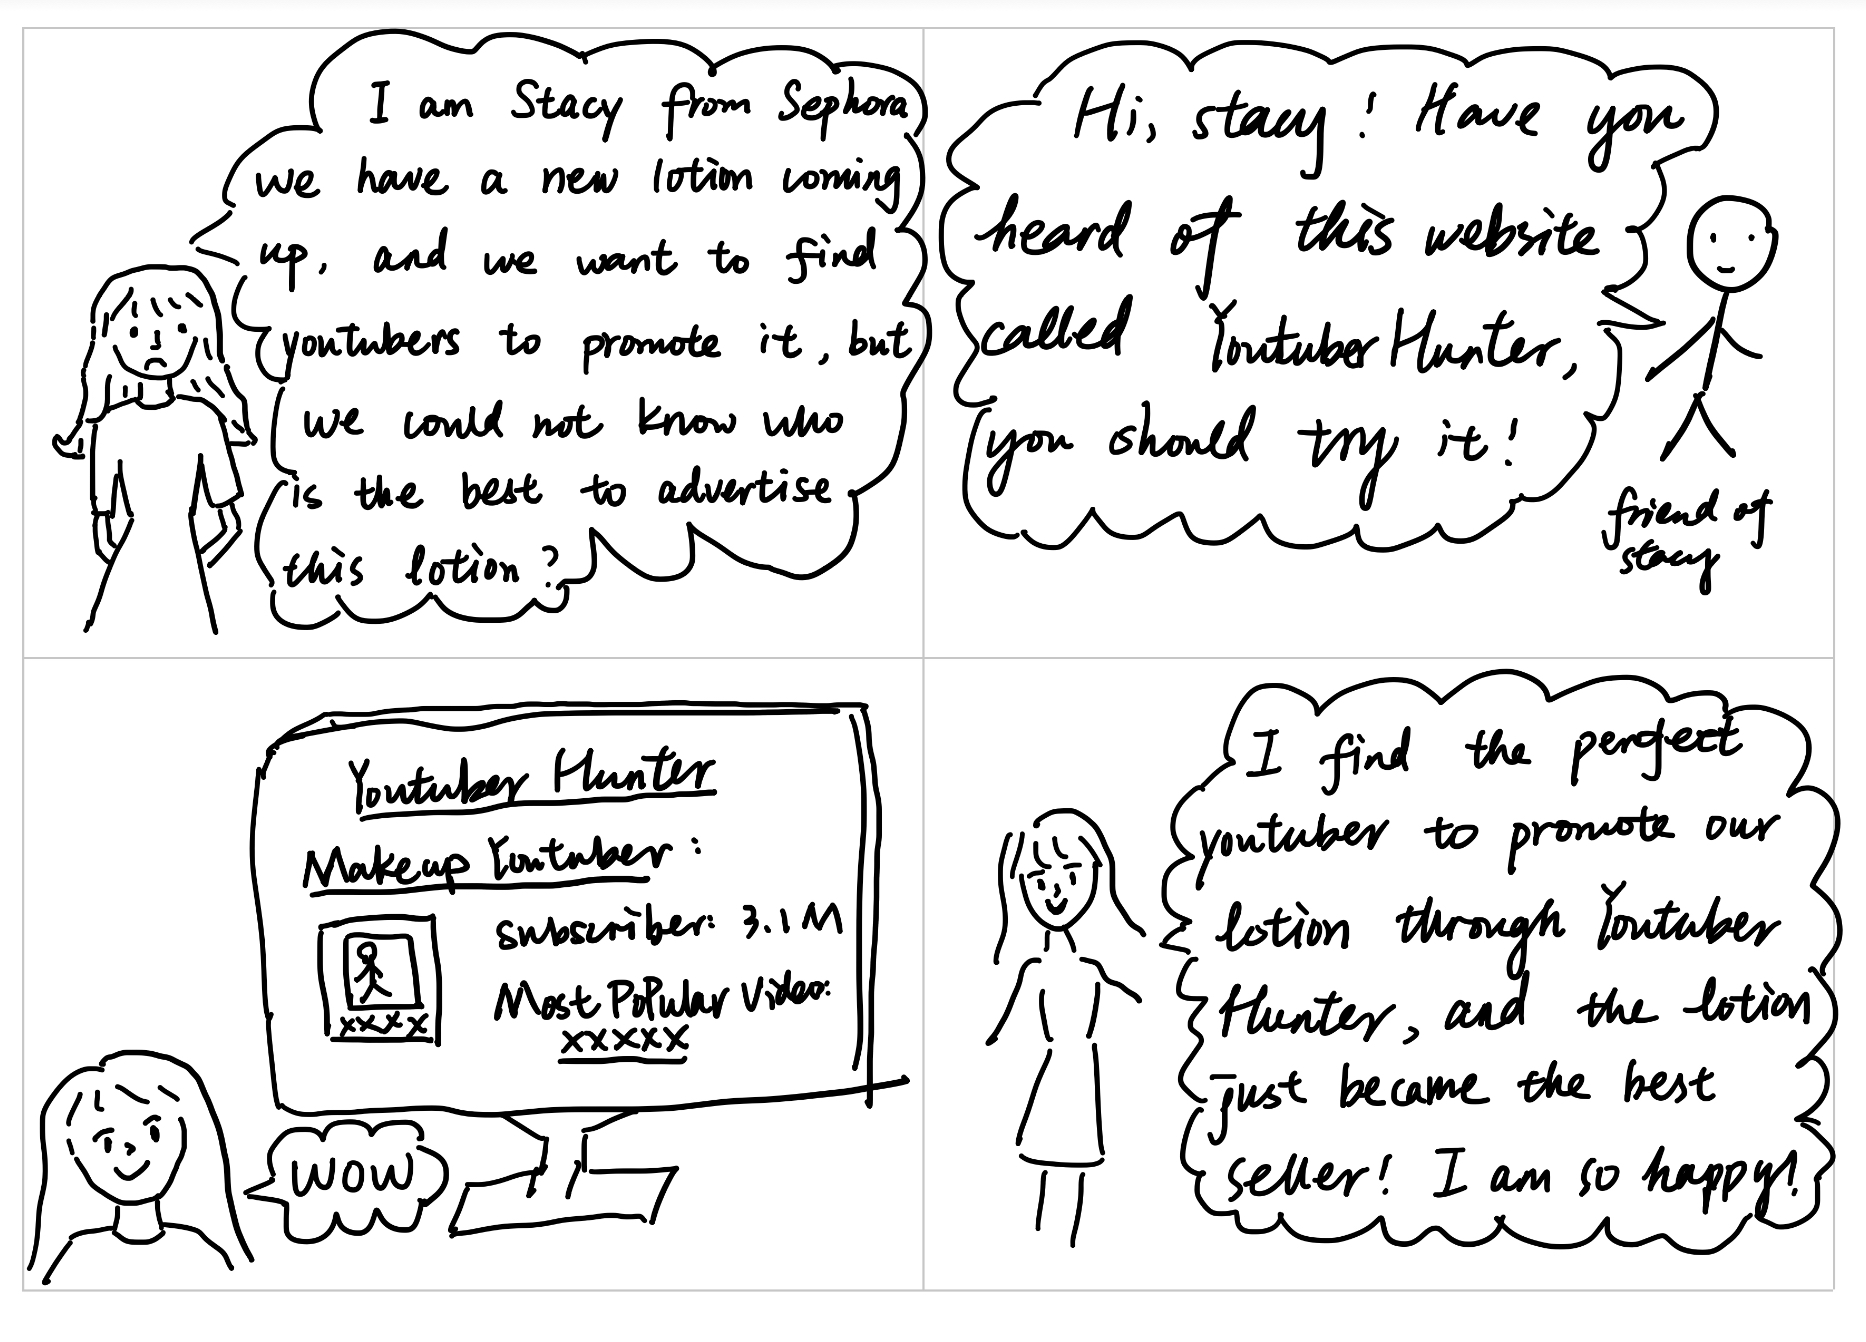 I am Stacy from Sephora
we have a new lotion coming
up, and we want to find
youtubers to promote it, but
we could not know who
is the best to advertise
this lotion?
Hi, stacy! Have you
heard of this website
called Youtuber Hunter,
you should try it!
friend of
stacy
Youtuber Hunter
Makeup Youtuber:
subscriber: 3.1M
Most Popular Video:
xxxx
xxxxx
WOW
I find the perfect
youtuber to promote our
lotion through Youtuber
Hunter, and the lotion
just became the best
seller! I am so happy!